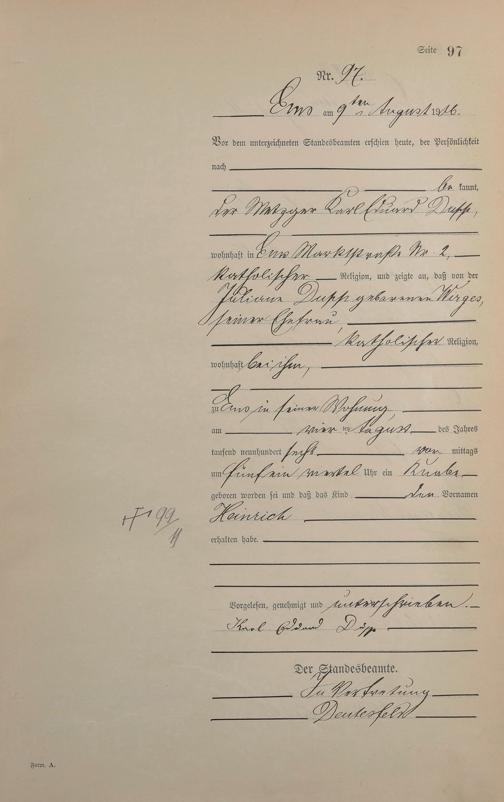 Seite 97
Nr. 97.
Ems am 9ten August 1906.
Vor dem unterzeichneten Standesbeamten erschien heute, der Persönlichkeit
nach
be kannt,
der Metzger Karl Eduard Dupp,
wohnhaft in Ems Marktstraße Nr 2,
katholischer Religion, und zeigte an, daß von der
Juliane Dupp geborenen Werges,
seiner Ehefrau,
katholischer Religion,
wohnhaft bei ihm,
zu Ems in seiner Wohnung
am vierten August des Jahres
tausend neunhundert sechs vor mittags
um fünf ein viertel Uhr ein Knabe
geboren worden sei und daß das Kind den Vornamen
Heinrich
erhalten habe.
Vorgelesen, genehmigt und unterschrieben.
Karl Eduard Dupp
Der Standesbeamte.
In Vertretung
Form. A.